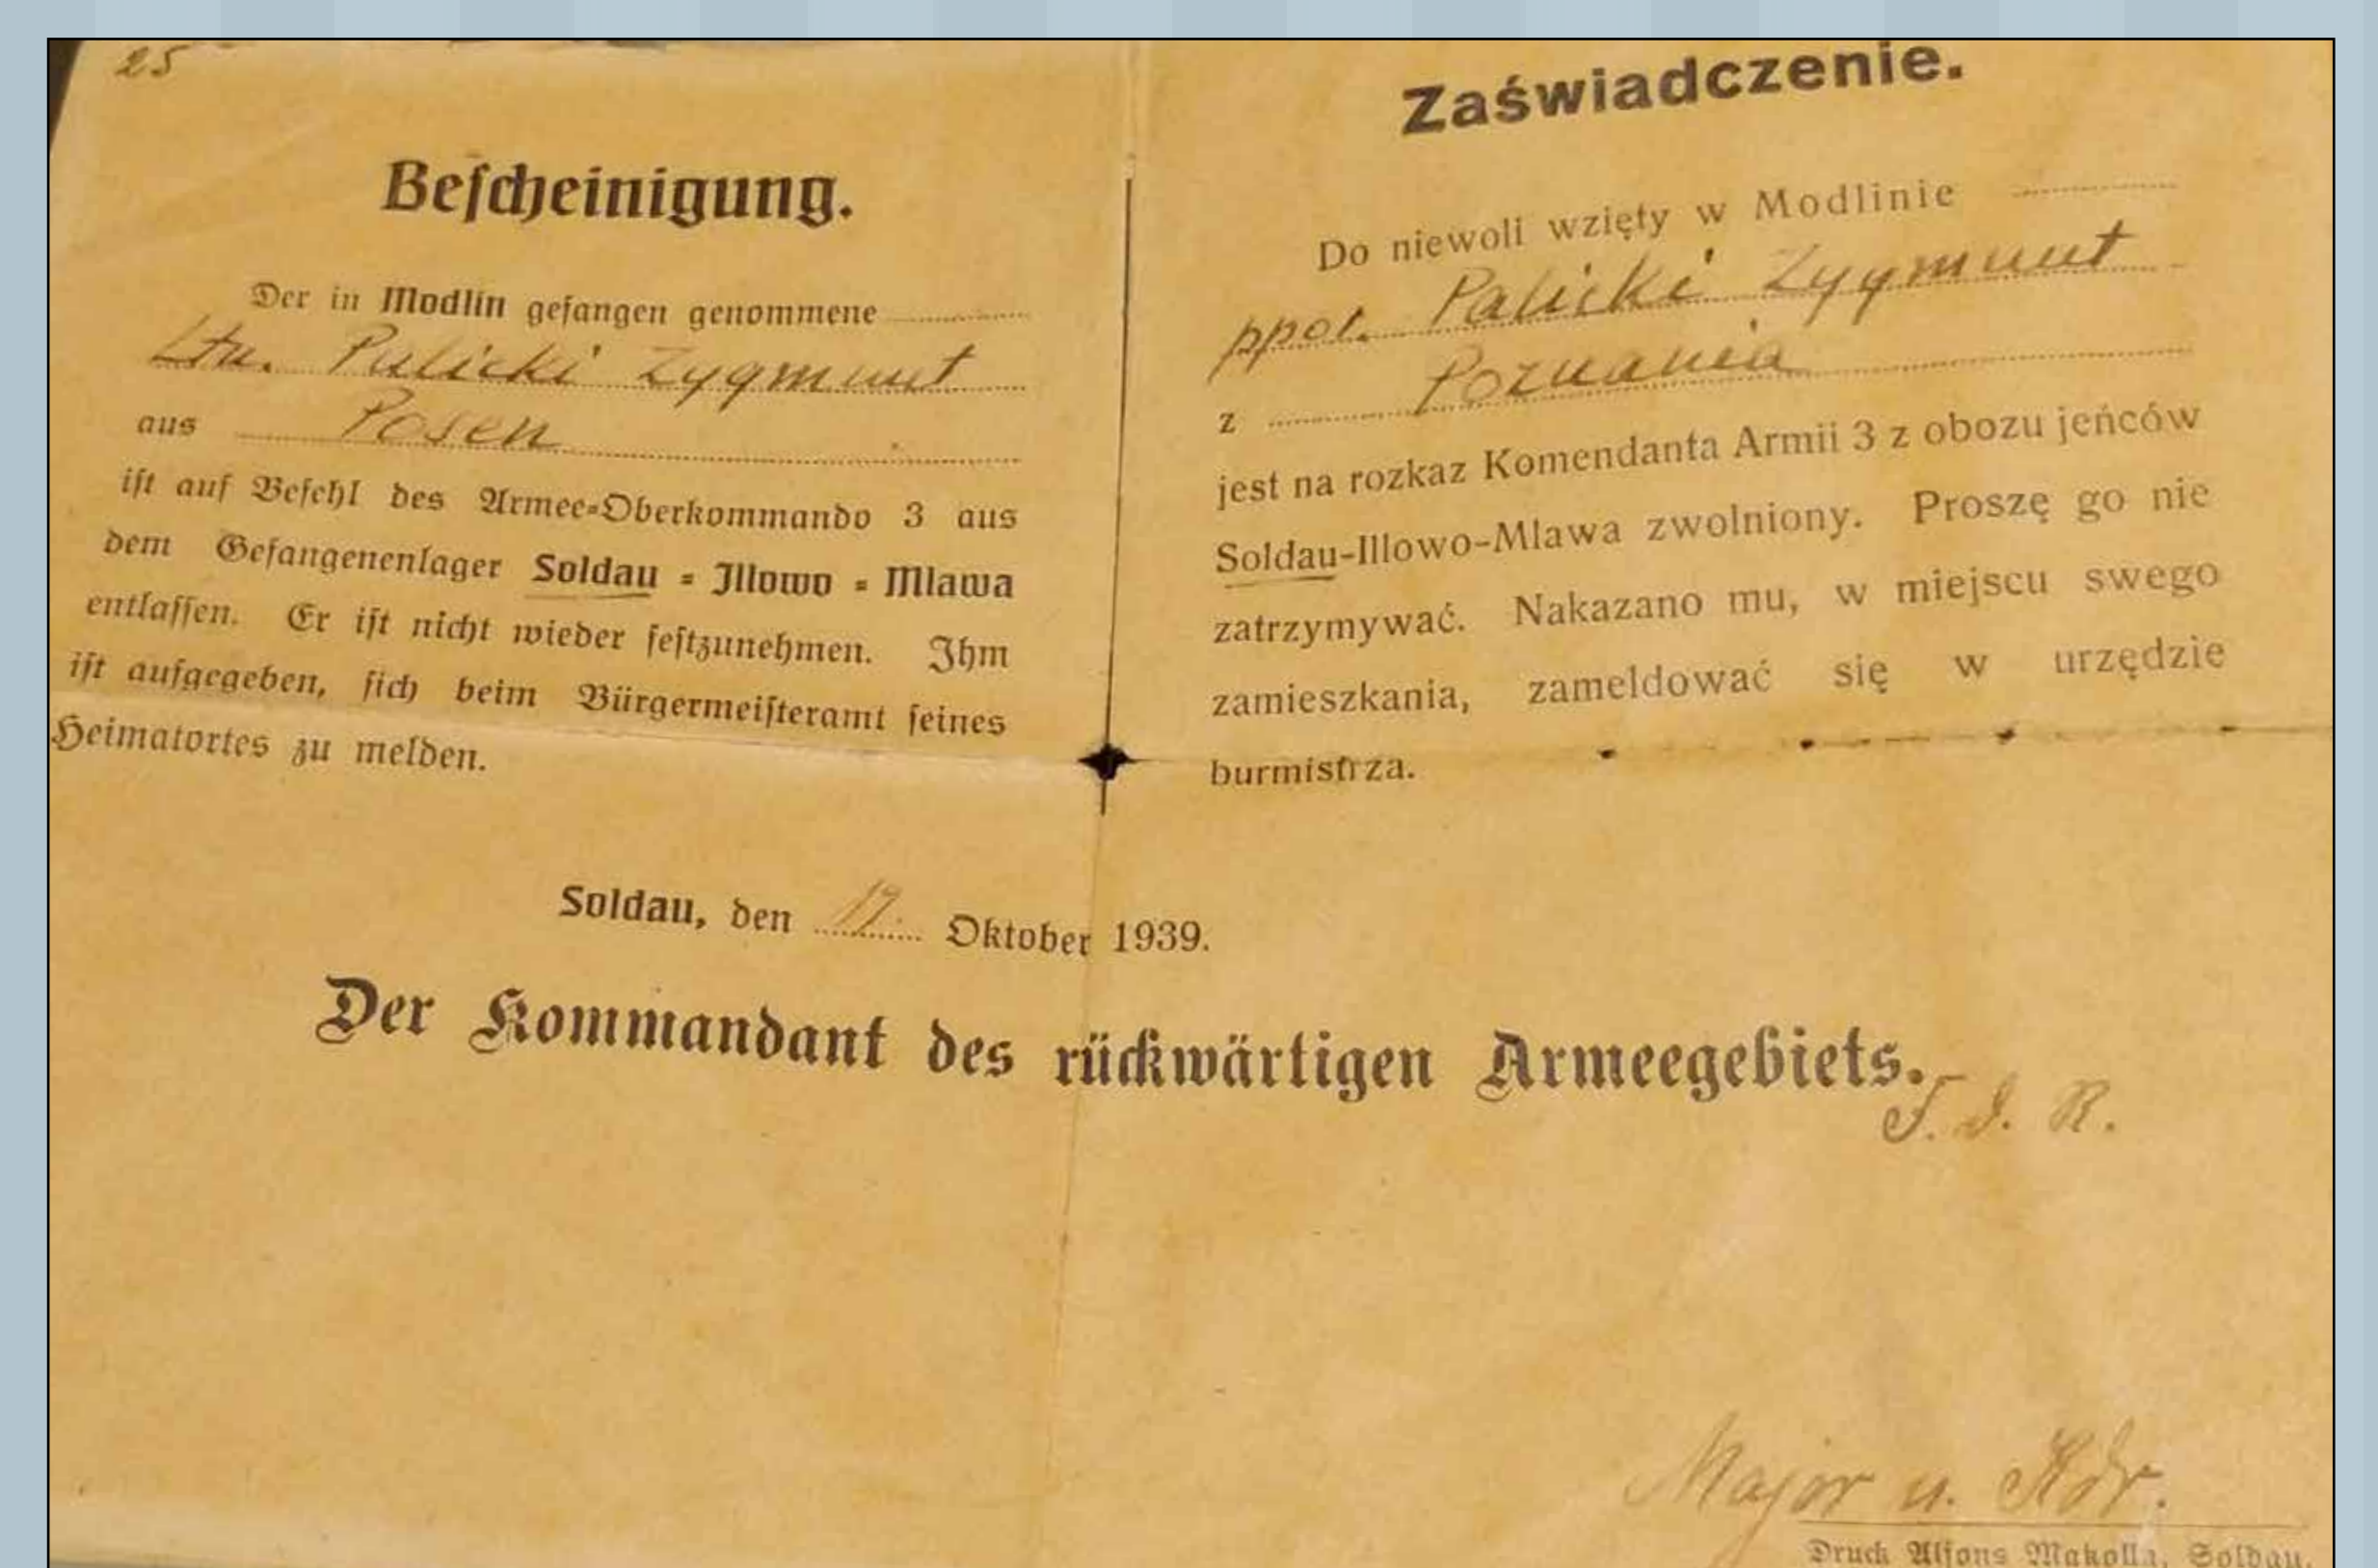 25
Bescheinigung.
Der in Modlin gefangen genommene
Ltn. Palicki Zygmunt
aus Posen
ist auf Befehl des Armee-Oberkommando 3 aus
dem Gefangenenlager Soldau - Illowo - Mlawa
entlassen. Er ist nicht wieder festzunehmen. Ihm
ist aufgegeben, sich beim Bürgermeisteramt seines
Heimatortes zu melden.
Zaświadczenie.
Do niewoli wzięty w Modlinie
ppor. Palicki Zygmunt
z Poznania
jest na rozkaz Komendanta Armii 3 z obozu jeńców
Soldau-Illowo-Mlawa zwolniony. Proszę go nie
zatrzymywać. Nakazano mu, w miejscu swego
zamieszkania, zameldować się w urzędzie
burmistrza.
Soldau, den Oktober 1939.
Der Kommandant des rückwärtigen Armeegebiets.
R.
Major u. Kdr.
Druck Alfons Makolla, Soldau